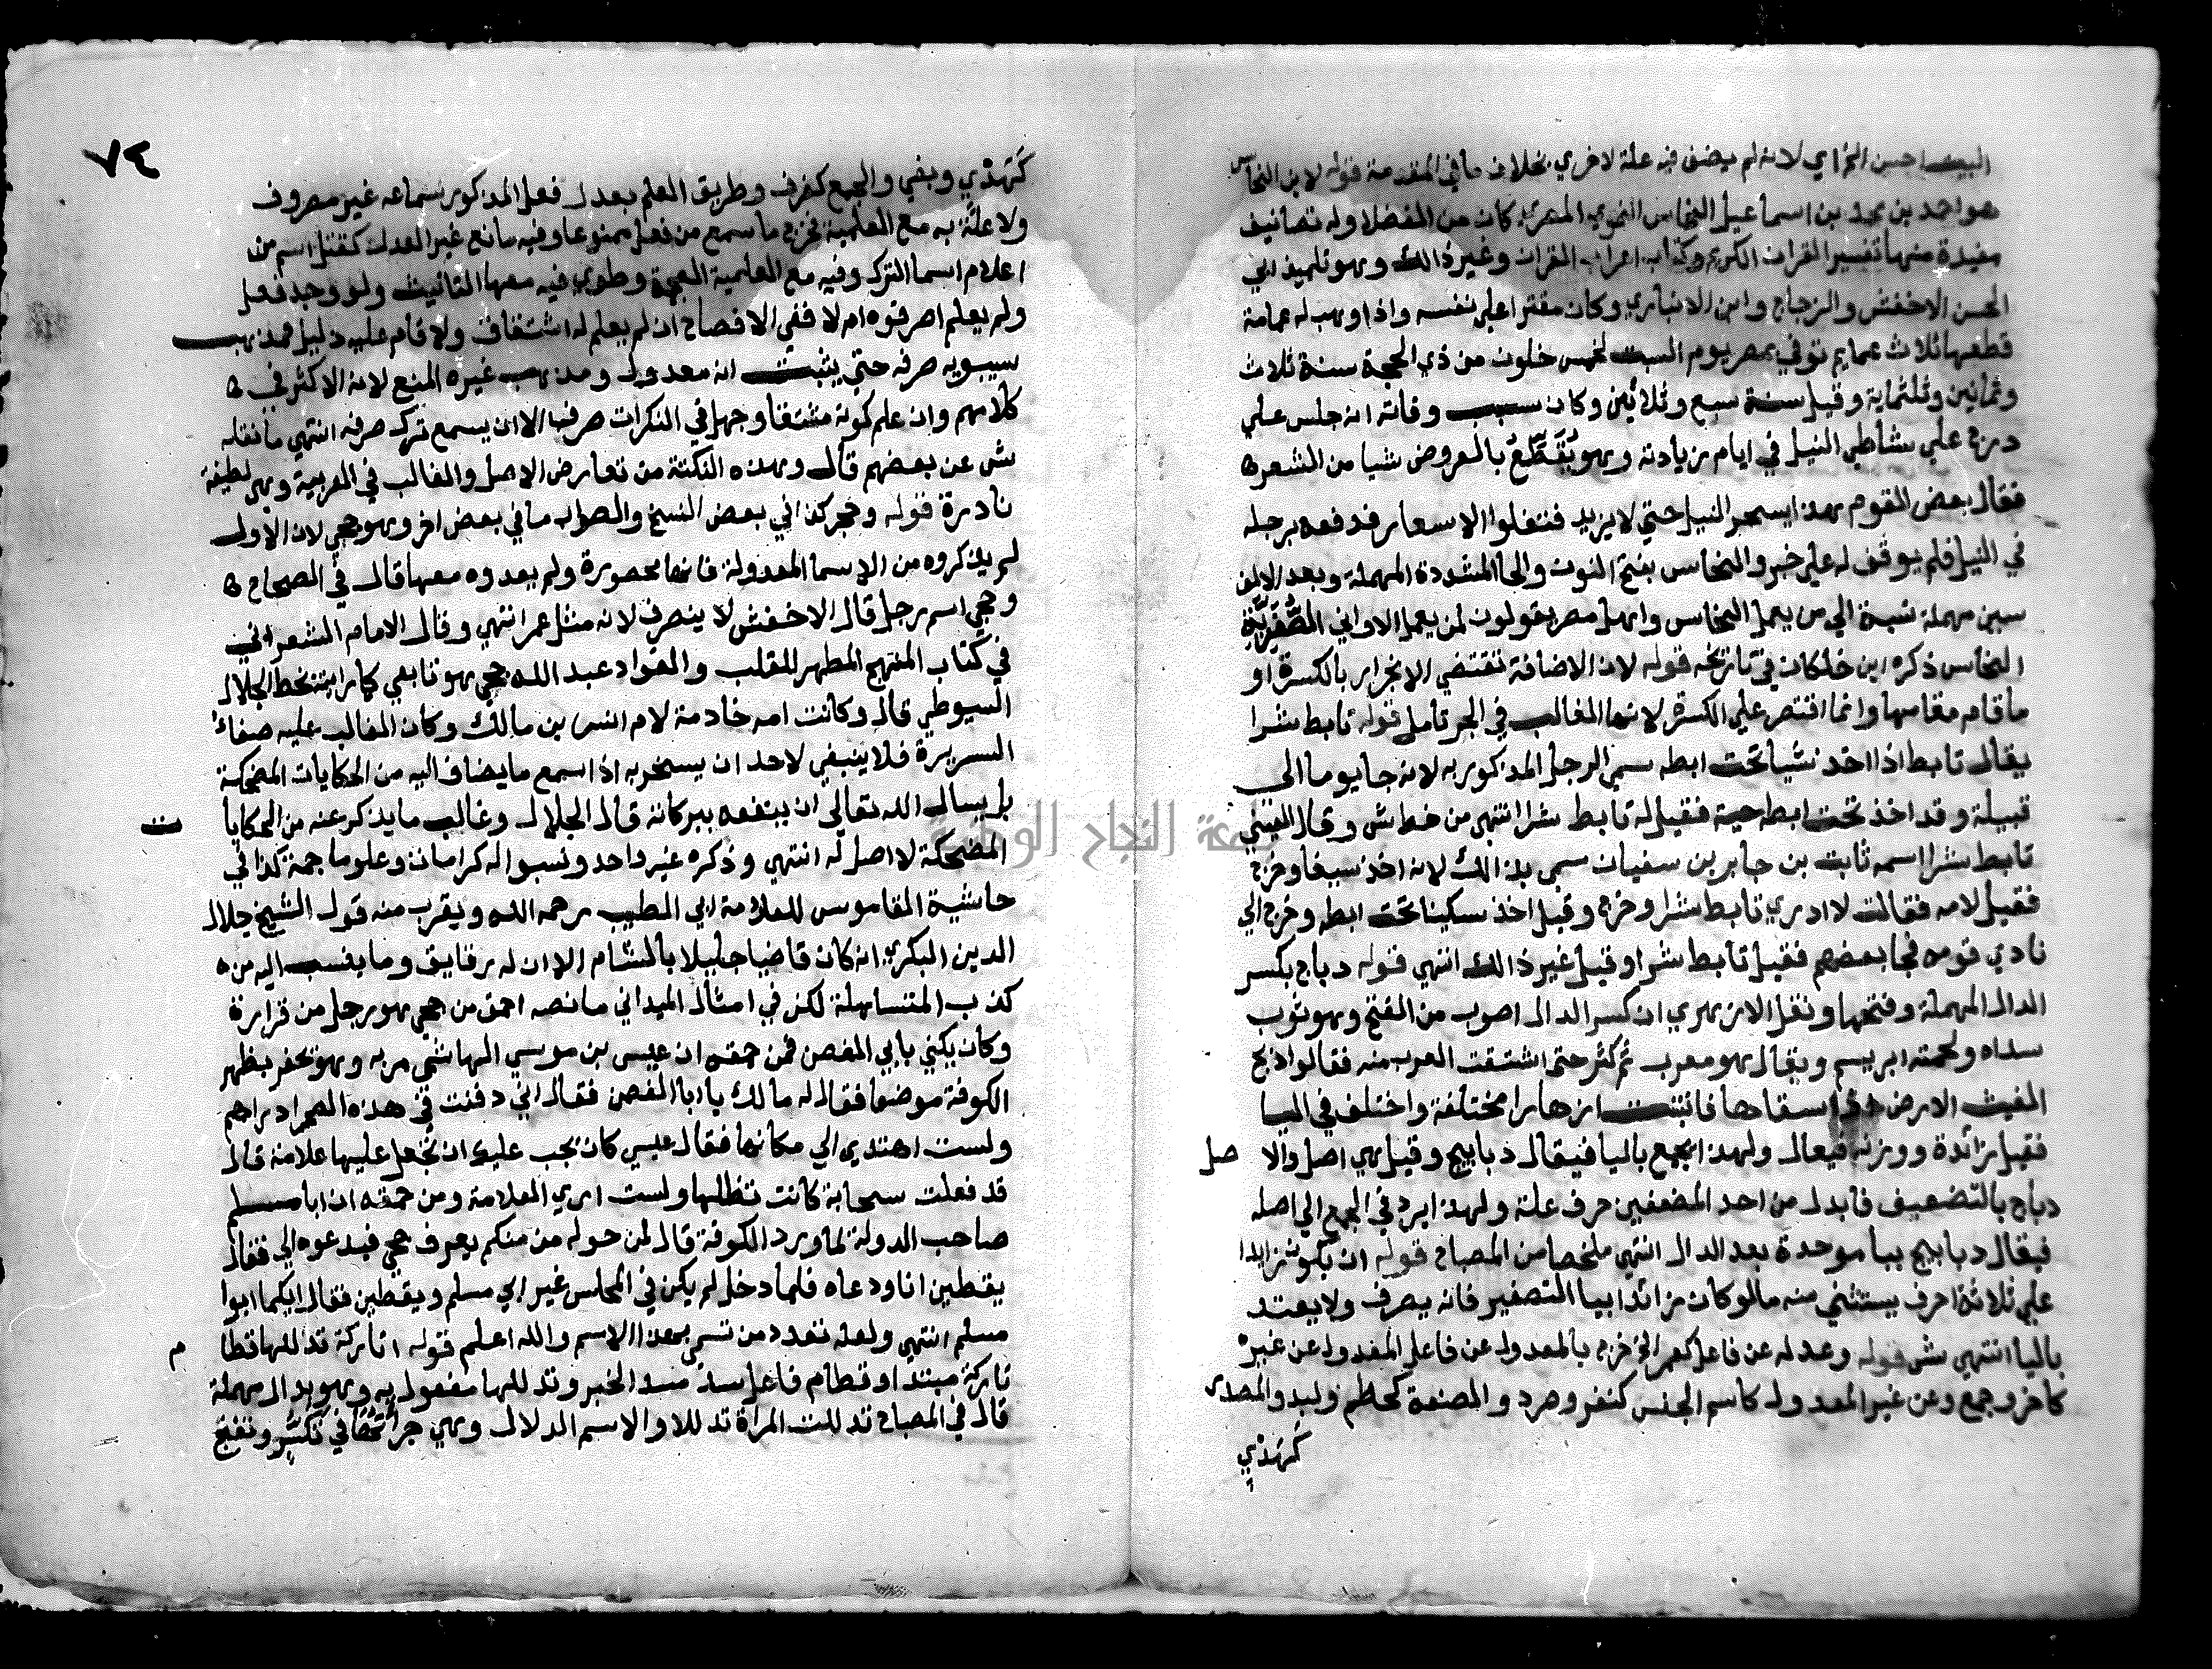 البيضا حسن الخ اي لانه لم يضف فيه علة لاخري بخلاف ما في المقدمة قوله لابن النحاس
هو احمد بن محمد بن اسماعيل النحاس النحوي المصري كان من الفضلا وله تصانيف
مفيدة منها تفسير القران الكريم وكتاب اعراب القران وغير ذالك وهو تلميذ ابي
الحسن الاخفش والزجاج وابن الانباري وكان مقترا علي نفسه واذا وهب له عمامة
قطعها ثلاث عمايم توفي بمصر يوم السبت لخمس خلون من ذي الحجة سنة ثلاث
وثمانين وثلثماية وقيل سنة سبع وثلاثين وكان سبب وفاته انه جلس علي
درج علي شاطي النيل في ايام زيادته وهو يُقَطِّعُ بالعروض شيا من الشعر
فقال بعض القوم هذا يسحر النيل حتي لا يزيد فتغلوا الاسعار فدفعه برجله
في النيل فلم يوقف له علي خبر والنحاس بفتح النون والحا المشددة المهملة وبعد الالف
سين مهملة نسبة الي من يعمل النحاس واهل مصر يقولون لمن يعمل الاواني الصُّفْرِيَّة
النحاس ذكره ابن خلكان في تاريخه قوله لان الاضافة تقتضي الانجرار بالكسرة او
ما قام مقامها وانما اقتصر علي الكسرة لانها الغالب في الجر تامل قوله تابط شرا
يقال تابط اذا اخذ شيا تحت ابطه سمي الرجل المذكور به لانه جا يوما الى
قبيلة وقد اخذ تحت ابطه حية فقيل له تابط شرا انتهي من خط ش وقال العيني
تابط شرا اسمه ثابت بن جابر بن سفيان سمي بذالك لانه اخذ سيفا وخرج
فقيل لامه فقالت لا ادري تابط شرا وخرج وقيل اخذ سكينا تحت ابطه وخرج الي
نادي قومه فجا بعضهم فقيل تابط شرا وقيل غير ذالك انتهي قوله دباج بكسر
الدال المهملة وفتحها ونقل الازهري ان كسر الدال اصوب من الفتح وهو ثوب
سداه ولحمته ابريسم ويقال هو معرب ثم كثر حتي اشتقت العرب منه فقالوا دبج
الغيث الارض اذا سقاها فانبتت ازهارا مختلفة واختلف في اليا
فقيل زائدة ووزنه فيعال ولهذا يجمع باليا فيقال دبابيج وقيل هي اصل والاصل
دباج بالتضعيف فابدل من احد المضعفين حرف علة ولهذا يرد في الجمع الي اصله
فيقال دبابيج ببا موحدة بعد الدال انتهي ملخصا من المصباح قوله ان يكون زايدا
علي ثلاثة احرف يستثني منه ما لو كان زائدا بيا التصغير فانه يصرف ولا يعتد
باليا انتهي ش قوله وعدله عن فاعل كعمر الخ خرج بالمعدول عن فاعل المعدول عن غيره
كاخر وجمع وعن غير المعدول كاسم الجنس كنغر وصرد والصفة كحطم ولبد والمصدر
كَهُدْي
٧٤
كَهُدْي وبغي والجمع كغرف وطريق العلم بعدل فعل المذكور سماعه غير مصروف
ولا علة به مع العلمية فخرج ما سمع من فعل ممنوعا وفيه مانع غير العدل كقتل اسم من
اعلام اسما الترك وفيه مع العلمية العجمة وطوي فيه معها التانيث ولو وجد فعل
ولم يعلم اصرفوه ام لا ففي الافصاح ان لم يعلم له اشتقاق ولا قام عليه دليل فمذهب
سيبويه صرفه حتي يثبت انه معدول ومذهب غيره المنع لانه الاكثر في
كلامهم وان علم كونه مشتقا وجهل في النكرات صرف الا ان يسمع ترك صرفه انتهي ما نقله
ش عن بعضهم قال وهذه النكتة من تعارض الاصل والغالب في العربية وهي لطيفة
نادرة قوله وحجر كذا في بعض النسخ والصواب ما في بعض اخر وهو جحي لان الاول
لم يذكروه من الاسما المعدولة فانها محصورة ولم يعدوه معها قال في الصحاح
وجحي اسم رجل قال الاخفش لا ينصرف لانه مثل عمر انتهي وقال الامام الشعراني
في كتاب المنهج المطهر للقلب والفواد عبد الله جحي هو تابعي كما رايته بخط الجلال
السيوطي قال وكانت امه خادمة لام انس بن مالك وكان الغالب عليه صفاء
السريرة فلا ينبغي لاحد ان يسخر به اذا سمع ما يضاف اليه من الحكايات المضحكة
بل يسال الله تعالي ان ينفعه ببركاته قال الجلال وغالب ما يذكر عنه من الحكايات
المضحكة لا اصل له انتهي وذكره غير واحد ونسبوا له كرامات وعلوما جمة كذا في
حاشية القاموس للعلامة ابي الطيب رحمه الله ويقرب منه قول الشيخ جلال
الدين البكري انه كان قاضيا جليلا بالشام الا ان له رقايق وما ينسب اليه من
كذب المتساهلة لكن في امثال الميداني ما نصه احمق من جحي هو رجل من فزارة
وكان يكني بابي الغصن فمن حمقه ان عيسي بن موسي الهاشمي مر به وهو يحفر بظهر
الكوفة موضعا فقال له مالك يا ابا الغصن فقال اني دفنت في هذه الصحرا دراهم
ولست اهتدي الي مكانها فقال عيسي كان يجب عليك ان تجعل عليها علامة قال
قد فعلت سحابة كانت تظلها ولست اري العلامة ومن حمقه ان ابا مسلم
صاحب الدولة لما ورد الكوفة قال لمن حوله من منكم يعرف جحي فيدعوه الي فقال
يقطين انا ودعاه فلما دخل لم يكن في المجلس غير ابي مسلم ويقطين فقال ايكما ابوا
مسلم انتهي ولعله تعدد من تسمي بهذا الاسم والله اعلم قوله اتاركة تدللها قطام
تاركة مبتدا وقطام فاعل سد مسد الخبر وتدللها مفعول به وهو بدال مهملة
قال في المصباح تدللت المراة تدللا والاسم الدلال وهي جراتها في تكسر وتغنج